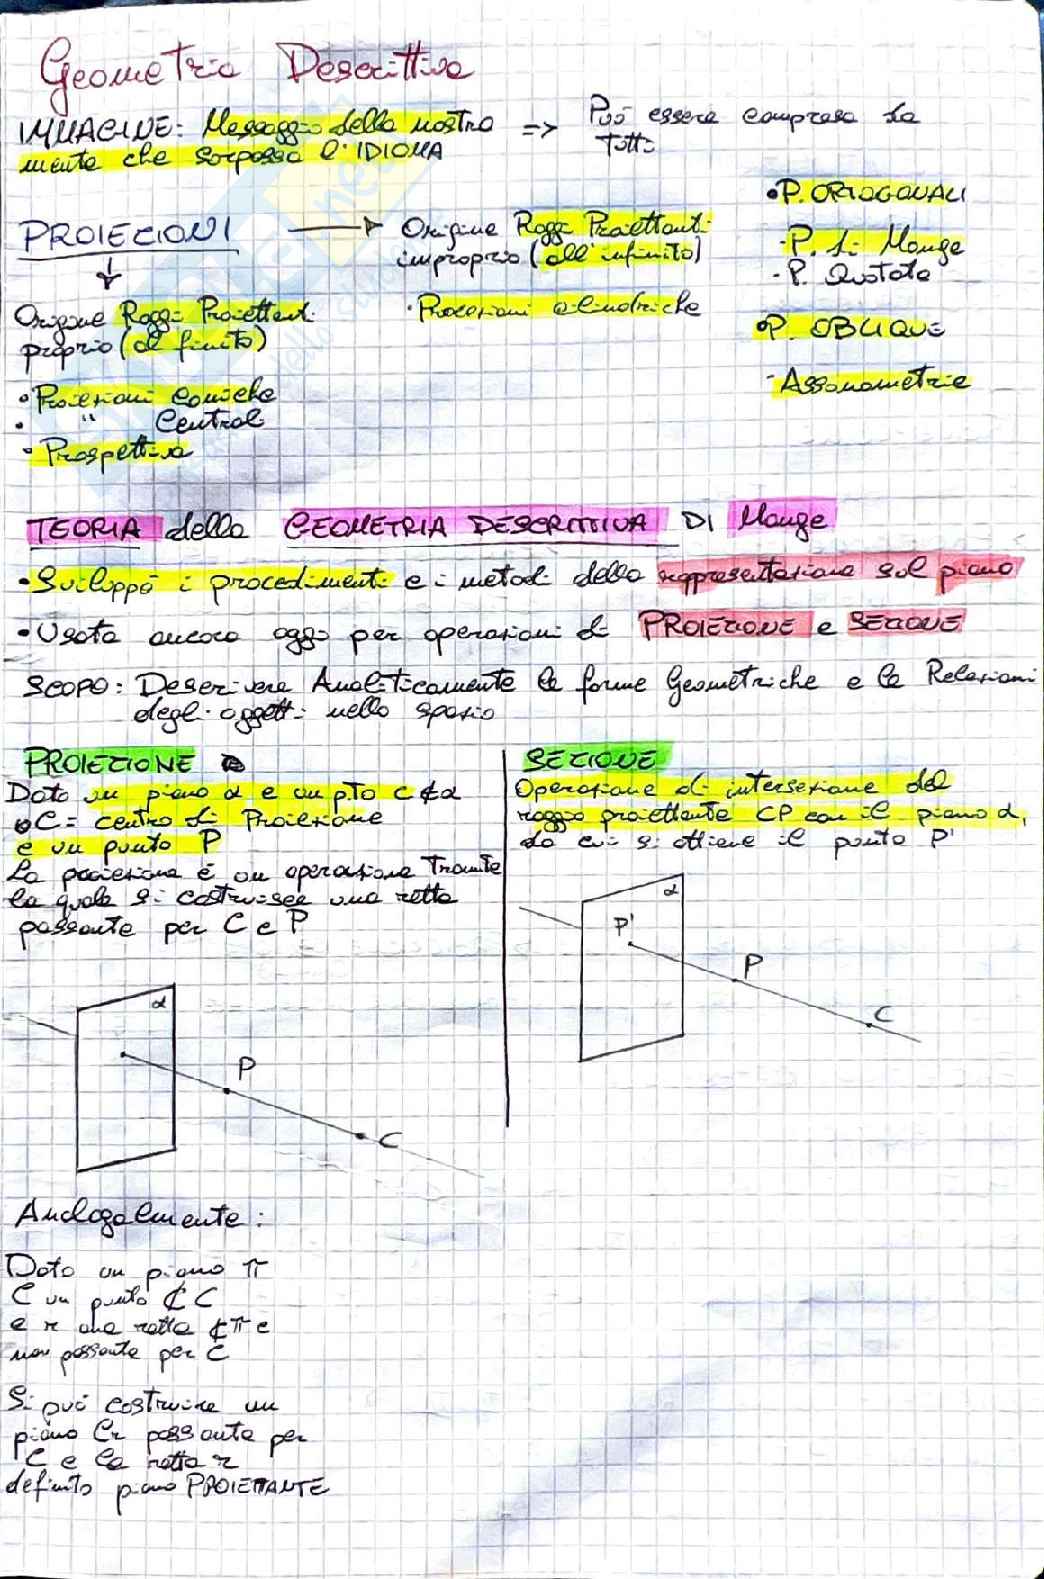 Geometria Descrittiva
IMMAGINE: Messaggio della nostra
mente che sorpassa l'IDIOMA
=> Può essere compresa da
tutti
PROIEZIONI
Origine Raggi Proiettanti
improprio (all'infinito)
• Proiezioni cilindriche
• P. ORTOGONALI
- P. di Monge
- P. Quotate
• P. OBLIQUE
- Assonometrie
Origine Raggi Proiettanti
proprio (al finito)
• Proiezioni coniche
• " Centrali
• Prospettiva
TEORIA della GEOMETRIA DESCRITTIVA DI Monge
• Sviluppò i procedimenti e i metodi della rappresentazione sul piano
• Usata ancora oggi per operazioni di PROIEZIONE e SEZIONE
SCOPO: Descrivere Analiticamente le forme Geometriche e le Relazioni
degli oggetti nello spazio
PROIEZIONE
Dato un piano α e un pto C∉α
C = centro di Proiezione
e un punto P
La proiezione è un operazione Tramite
la quale si costruisce una retta
passante per C e P
α
P
C
SEZIONE
Operazione di intersezione del
raggio proiettante CP con il piano α,
da cui si ottiene il punto P'
α
P'
P
C
Analogalmente:
Dato un piano π
C un punto ₵ C
e r una retta ₵ π e
non passante per C
Si può costruire un
piano Cr passante per
C e la retta r
definito piano PROIETTANTE